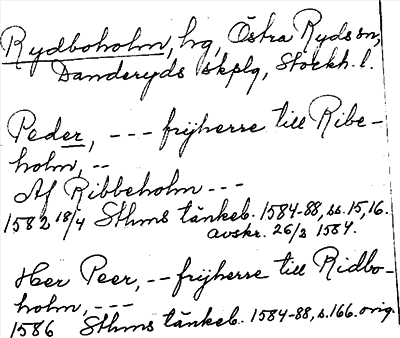 Rydboholm, hg, Östra Ryds sn,
Danderyds skplg, Stockh. l.
Peder, --- frijherre till Ribe-
holm, --
Af Ribbeholm ---
1582 18/4 Sthms tänkeb. 1584-88, ss. 15, 16.
avskr. 26/2 1584.
Her Peer, -- frijherre till Ridbo-
holm, ---
1586 Sthms tänkeb. 1584-88, s. 166. orig.